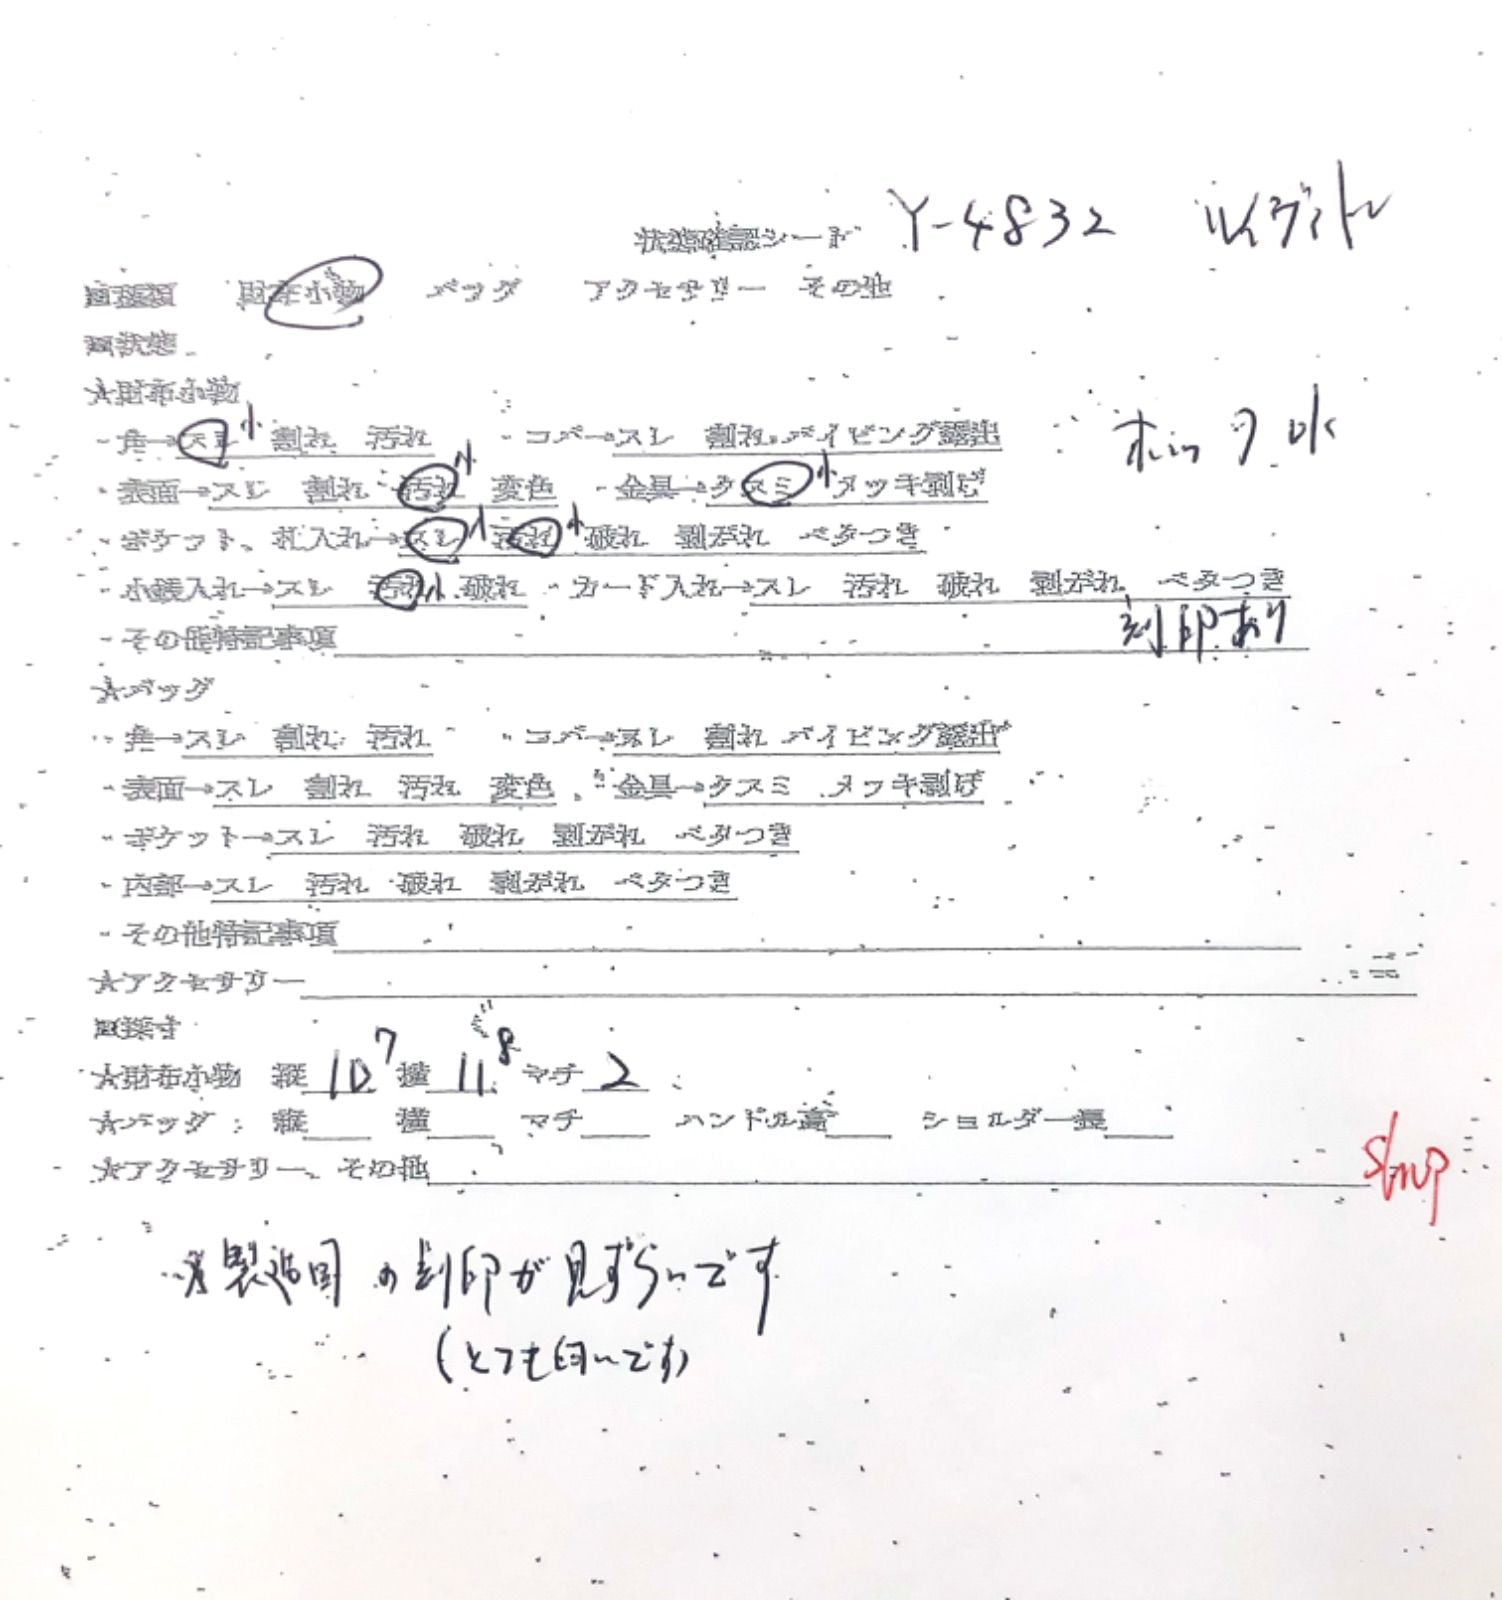 状態確認シート Y-4832 ルイヴィトン
■種類 財布小物 バッグ アクセサリー その他
■状態
★財布小物
・角→スレ小 割れ 汚れ ・コバ→スレ 割れ パイピング露出
ホック OK
・表面→スレ 割れ 汚れ小 変色 ・金具→クスミ小 メッキ剥げ
・ポケット、札入れ→スレ小 汚れ小 破れ 剥がれ ベタつき
・小銭入れ→スレ 汚れ小 破れ ・カード入れ→スレ 汚れ 破れ 剥がれ ベタつき
・その他特記事項 刻印あり
★バッグ
・角→スレ 割れ 汚れ ・コバ→スレ 割れ パイピング露出
・表面→スレ 割れ 汚れ 変色 ・金具→クスミ メッキ剥げ
・ポケット→スレ 汚れ 破れ 剥がれ ベタつき
・内部→スレ 汚れ 破れ 剥がれ ベタつき
・その他特記事項
★アクセサリー
■採寸
★財布小物 縦 10 7 横 11 8 マチ 2
★バッグ 縦 横 マチ ハンドル高 ショルダー長
★アクセサリー、その他
※製造国の刻印が見ずらいです
(とても匂いです)